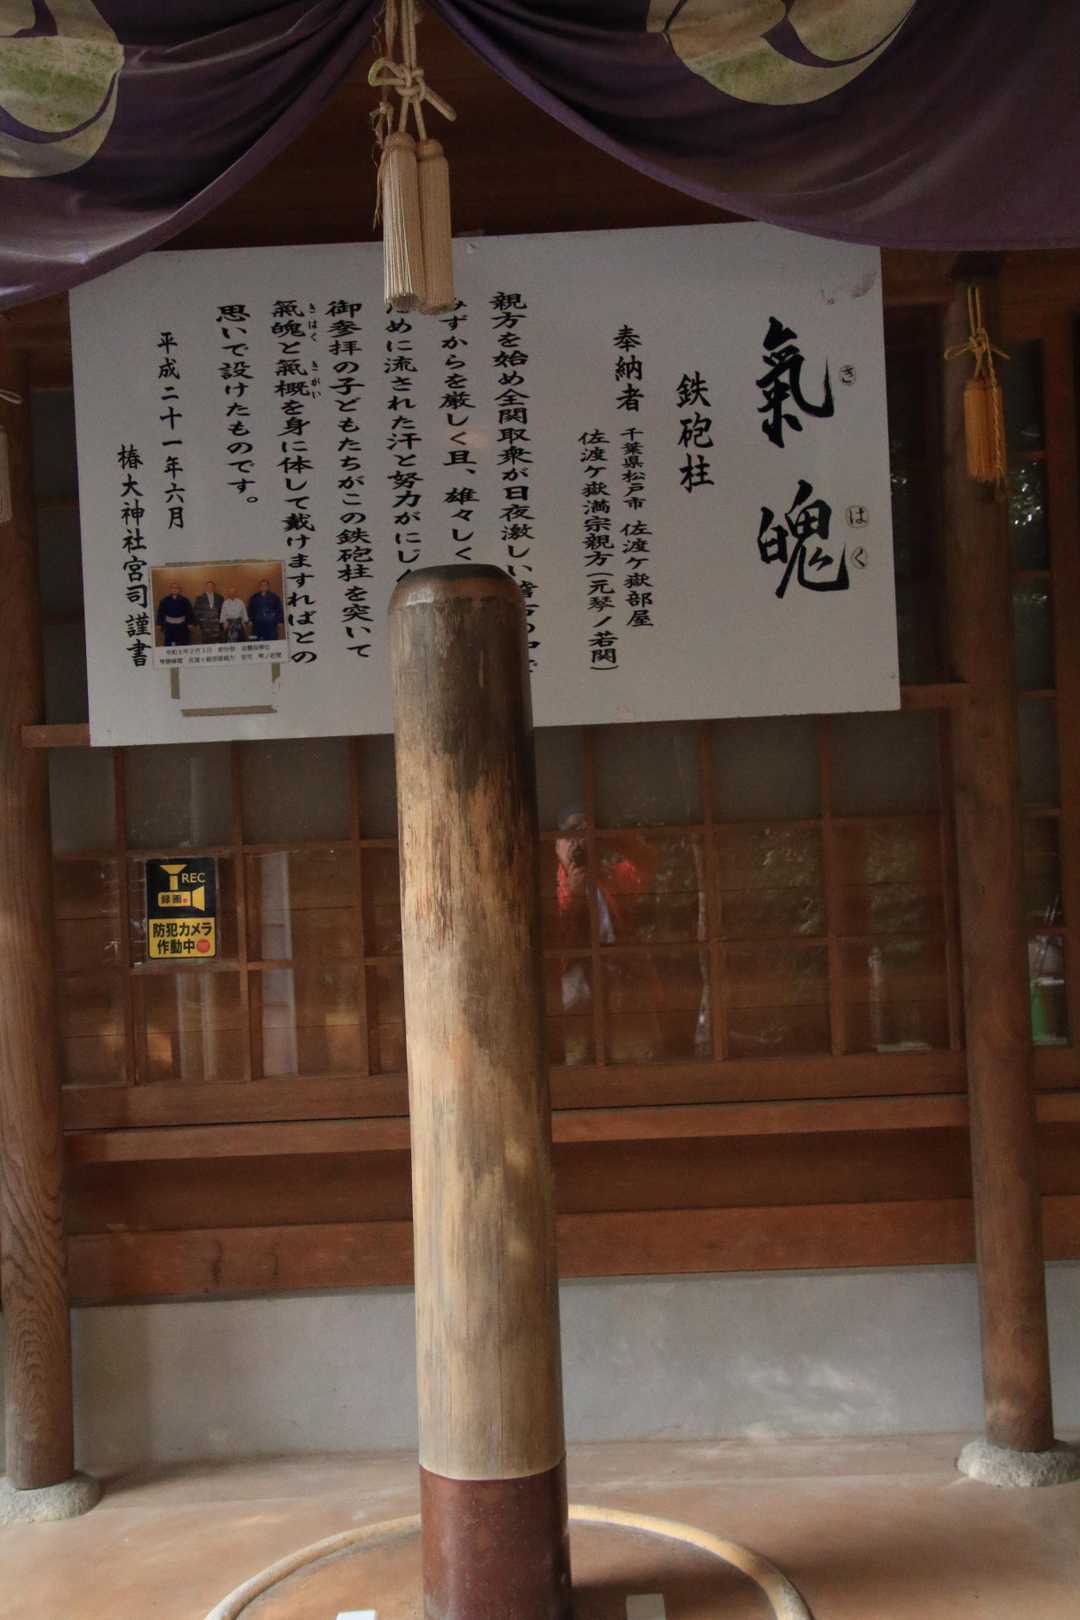 氣魄
き
はく
鉄砲柱
奉納者 千葉県松戸市 佐渡ケ嶽部屋
佐渡ケ嶽満宗親方（元琴ノ若関）
親方を始め全関取衆が日夜激しい
みずからを厳しく且、雄々しく
に流された汗と努力がにじ
御参拝の子どもたちがこの鉄砲柱を突いて
氣魄と氣概を身に体して戴けますればとの
きはく きがい
思いで設けたものです。
平成二十一年六月
椿大神社宮司 謹書
REC
録画
防犯カメラ
作動中